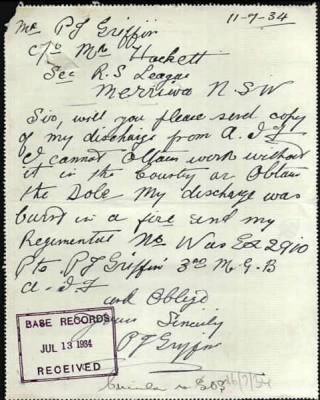 11-7-34
Mr P J Griffin
c/o Mr Hackett
Sec R.S League
Merriwa N.S.W
Sir, will you please send copy
of my discharge from A.I.F
I cannot obtain work without
it in the Country or Obtain
the Dole My discharge was
burst in a fire and my
Regimental No Was Ex 2910
Pte P J Griffin 3rd M.G.B
A.I.F
and Oblige
Yours Sincerely
P J Griffin
BASE RECORDS
JUL 13 1934
RECEIVED
16/7/34